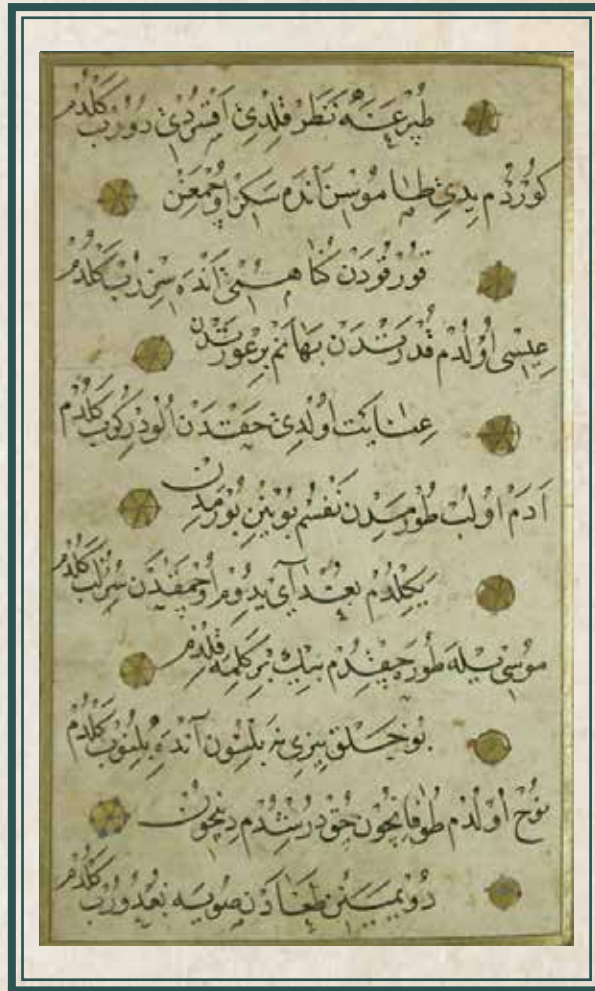 طپرغنه نظر قلدی دوزب كلدم
كوردم یدی طاموسن آنده سكز اوجمغن
قورقودن كناهمی انده سزرب كلدم
عیسی اولدم قدرتدن بهانم بر عورتدن
عنایت اولدی حقدن كلدم
ادم اولب طورمدن نفسم بوینن بورمدن
یكلدم بغدای یدوم اوجمقدن سرلب كلدم
موسی بیله طوره چقدم بیك بر كلمه قلدم
بو خلق بزی نه بلسون آنده بلنوب كلدم
نوح اولدم طوفانچون چق درشدم دینچون
دویمیین صویه بغدورب كلدم